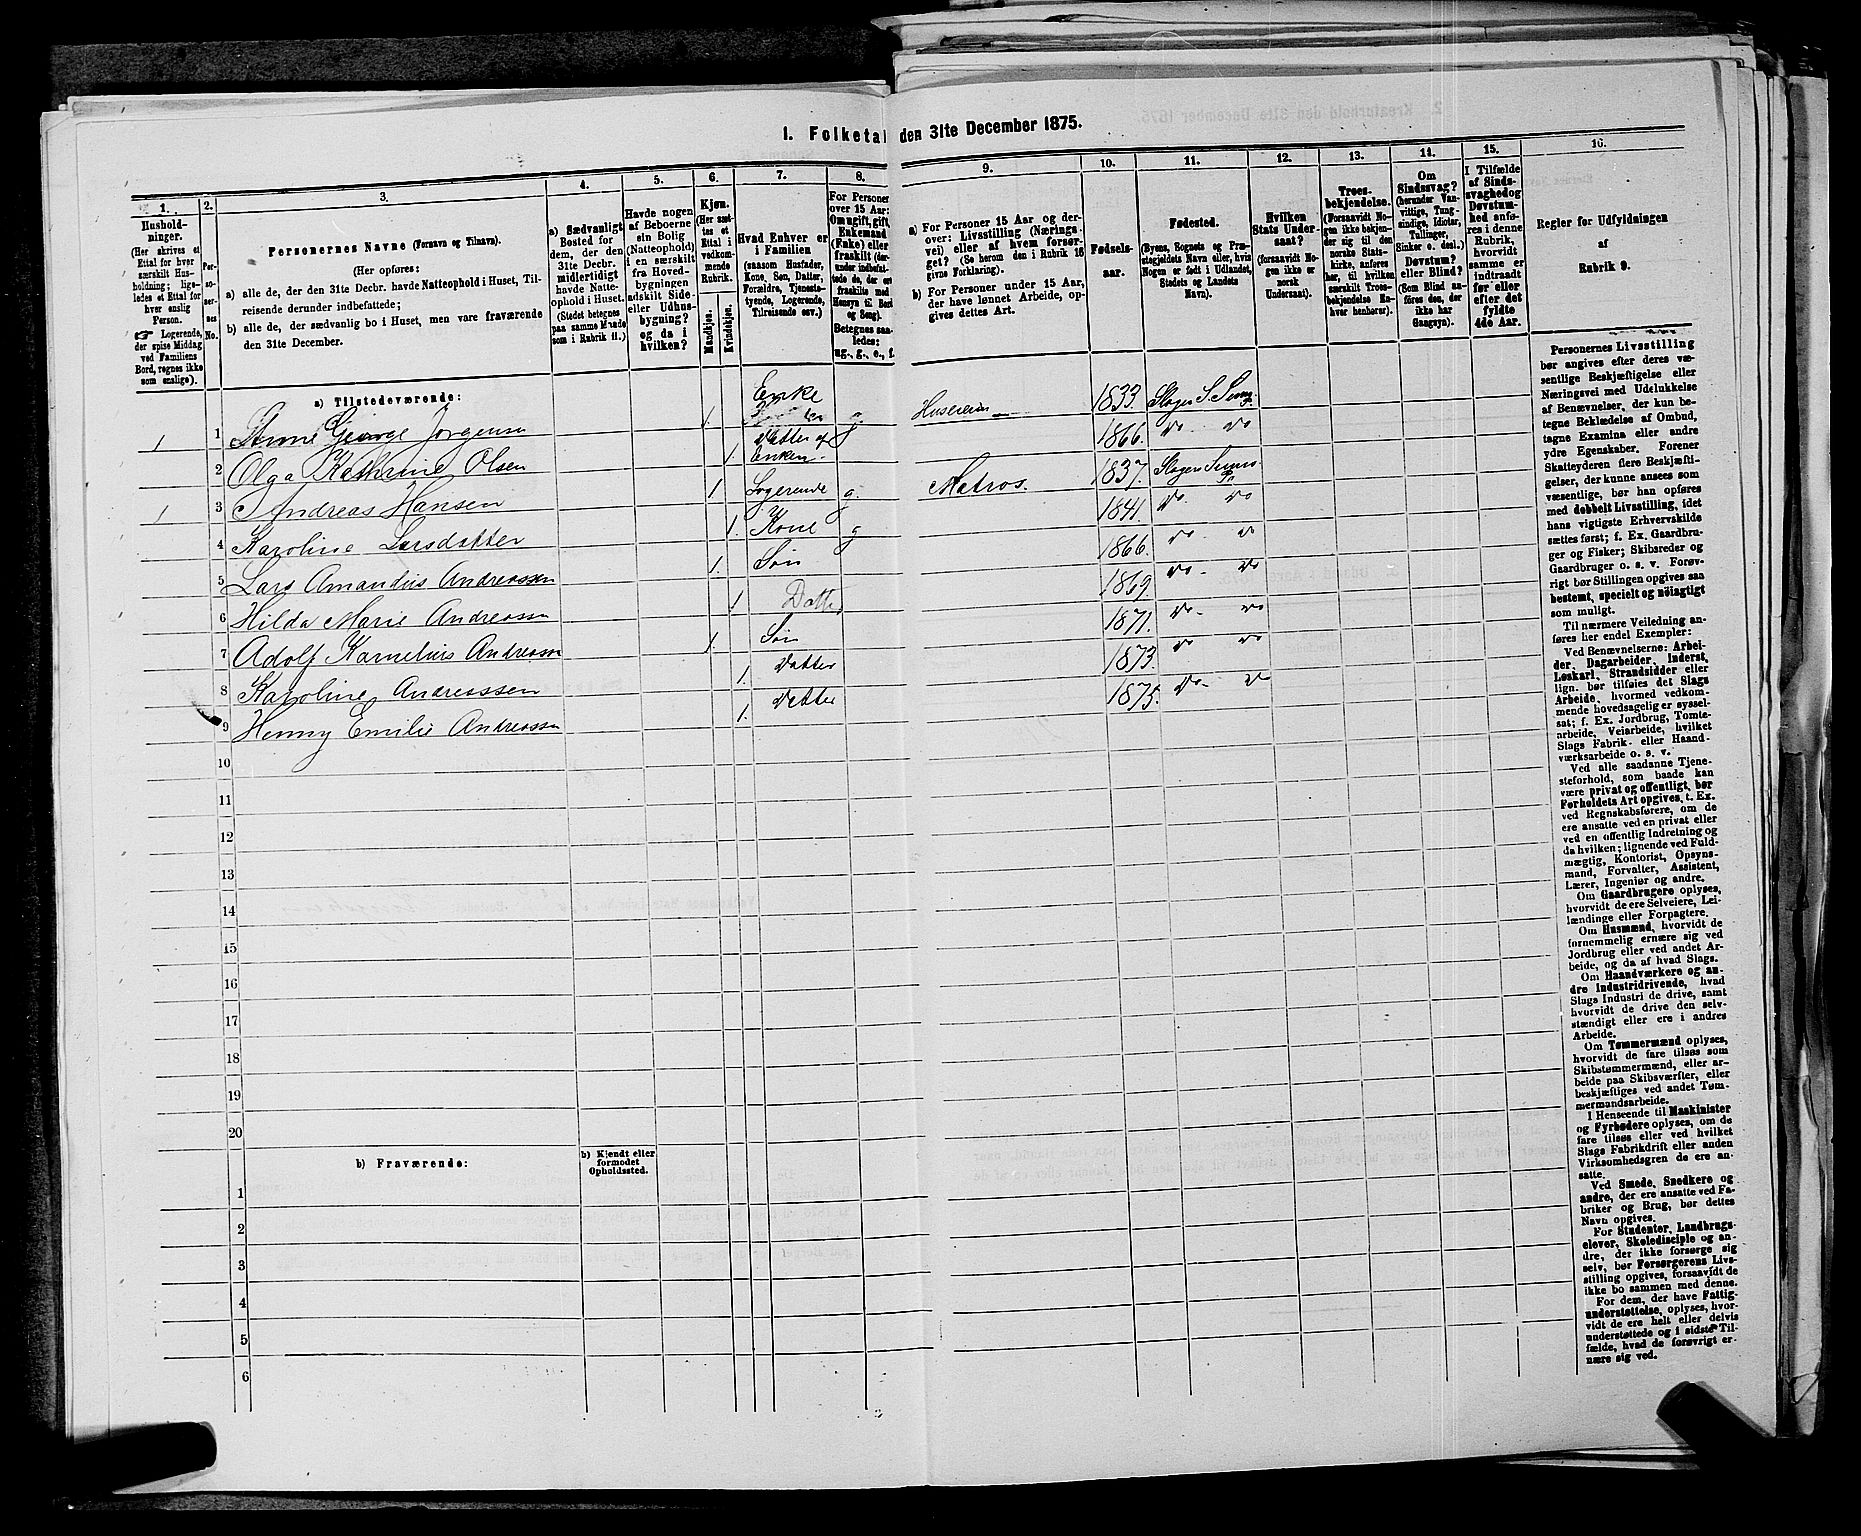 1. Folketal den 31te December 1875.
1.
Hushold-
ninger.
(Her skrives et
Ettal for hver
særskilt Hus-
holdning; lige-
ledes et Ettal for
hver enslig
Person.
☞ Logerende,
der spise Middag
ved Familiens
Bord, regnes ikke
som enslige).
2.
Per-
so-
ner-
nes
No.
3.
Personernes Navne (Fornavn og Tilnavn).
(Her opføres:
a) alle de, der den 31te Decbr. havde Natteophold i Huset, Til-
reisende derunder indbefattede;
b) alle de, der sædvanlig bo i Huset, men vare fraværende
den 31te December.
4.
a) Sædvanligt
Bosted for
dem, der den
31te Decbr.
midlertidigt
havde Natte-
ophold i Huset.
(Stedet betegnes
paa samme Maade
som i Rubrik 11.)
5.
Havde nogen
af Beboerne
sin Bolig
(Natteophold)
i en særskilt
fra Hoved-
bygningen
adskilt Side-
eller Udhus-
bygning?
og da i
hvilken?
6.
Kjøn.
(Her sæt-
tes et
Ettal i
vedkom-
mende
Rubrik.
Mandkjøn.
Kvindekjøn.
7.
Hvad Enhver er
i Familien
(saasom Husfader,
Kone, Søn, Datter,
Forældre, Tjeneste-
tyende, Logerende,
Tilreisende osv.)
8.
For Personer
over 15 Aar:
Om ugift, gift,
Enkemand
(Enke) eller
fraskilt
Betegnes saa-
ledes:
ug., g., e., f.
9.
a) For Personer 15 Aar og der-
over: Livsstilling (Nærings-
vei) eller af hvem forsør-
get? (Se herom den i Rubrik 16
givne Forklaring).
b) For Personer under 15 Aar,
der have lønnet Arbeide, op-
gives dettes Art.
10.
Fødsels-
aar.
11.
Fødested.
(Byens, Sognets og Præ-
stegjeldets Navn eller, hvis
Nogen er født i Udlandet,
Stedets og Landets
Navn).
12.
Hvilken
Stats Under-
saat?
(forsaavidt No-
gen ikke er
norsk
Undersaat).
13.
Troes-
bekjendelse.
(Forsaavidt No-
gen ikke bekjen-
der sig til den
norske Stats-
kirke, anføres
her, til hvilken
særskilt Troes-
bekjendelse En-
hver henhører).
14.
Om
Sindssvag?
(herunder Van-
vittige, Tung-
sindige, Idioter,
Tullinger,
Sinker o. desl.)
Døvstum?
eller Blind?
(Som Blind an-
føres den, der
ikke har
Gangsyn).
15.
I Tilfælde
af Sinds-
svaghed og
Døvstum-
hed anfø-
res i denne
Rubrik,
hvorvidt
samme er
indtraadt
før eller
efter det
fyldte
4de Aar.
16.
Regler for Udfyldningen
af
Rubrik 9.
a) Tilstedeværende:
1 1 Anne George Jørgensen 1. Enke g Huseierin 1833.
2 Olga Kathrine Olsen 1. Datter af Enken 1866. do do
1 3 Andreas Hansen 1 Logerende g. Matros. 1837.
4 Karoline Larsdatter 1. Kone g 1841. do do
5 Lars Amandus Andreassen 1. Søn 1866. do do
6 Hilda Marie Andreassen 1 Datter 1869. do do
7 Adolf Kornelius Andreassen 1. Søn 1871. do do
8 Karoline Andreassen 1. Datter 1873. do do
9 Henny Emilie Andreassen 1. Datter 1875. do do
10
11
12
13
14
15
16
17
18
19
20
b) Fraværende:
b) Kjendt eller
formodet
Opholdssted.
1
2
3
4
5
6
Personernes Livsstilling
bør angives efter deres væ-
sentlige Beskjæftigelse eller
Næringsvei med Udelukkelse
af Benævnelser, der kun be-
tegne Beklædelse af Ombud,
tagne Examina eller andre
ydre Egenskaber. Forener
Skatteyderen flere Beskjæfti-
gelser, der kunne ansees som
væsentlige, bør han opføres
med dobbelt Livsstilling, idet
hans vigtigste Erhvervskilde
sættes først; f. Ex. Gaardbru-
ger og Fisker; Skibsreder og
Gaardbruger o. s. v. Forøv-
rigt bør Stillingen opgives saa
bestemt, specielt og nøiagtigt
som muligt.
Til nærmere Veiledning an-
føres her endel Exempler:
Ved Benævnelserne: Arbei-
der, Dagarbeider, Inderst,
Løskarl, Strandsidder eller
lign. bør tilføies det Slags
Arbeide, hvormed vedkom-
mende hovedsagelig er syssel-
sat; f. Ex. Jordbrug, Tomte-
arbeide, Veiarbeide, hvilket
Slags Fabrik- eller Haand-
værksarbeide o. s. v.
Ved alle saadanne Tjene-
steforhold, som baade kan
være privat og offentligt, bør
Forholdets Art opgives, t. Ex.
ved Regnskabsførere, om de
ere ansatte ved en privat eller
ved en offentlig Indretning og
da hvilken; lignende ved Fuld-
mægtig, Kontorist, Opsyns-
mand, Forvalter, Assistent,
Lærer, Ingeniør og andre.
Om Gaardbrugere oplyses,
hvorvidt de ere Selveiere, Lei-
lændinge eller Forpagtere.
Om Husmænd, hvorvidt de
fornemmelig ernære sig ved
Jordbrug eller ved andet Ar-
beide, og da af hvad Slags.
Om Haandværkere og an-
dre Industridrivende, hvad
Slags Industri de drive, samt
hvorvidt de drive den selv-
stændigt eller ere i andres
Arbeide.
Om Tømmermænd oplyses,
hvorvidt de fare tilsøs som
Skibstømmermænd, eller ar-
beide paa Skibsværfter, eller
beskjæftiges ved andet Tøm-
mermandsarbeide.
I Henseende til Maskinister
og Fyrbødere oplyses, om de
fare tilsøs eller ved hvilket
Slags Fabrikdrift eller anden
Virksomhedsgren de ere an-
satte.
Ved Smede, Snedkere og
andre, der ere ansatte ved Fa-
briker og Brug, bør dettes
Navn opgives.
For Studenter, Landbrugs-
elever, Skoledisciple og an-
dre, der ikke forsørge sig
selv, bør Forsørgerens Livs-
stilling opgives, forsaavidt de
ikke bo sammen med denne.
For dem, der have Fattig-
understøttelse, oplyses, hvor-
vidt de ere helt eller delvis
understøttede og i sidste Til-
fælde, hvad de forøvrigt er-
nære sig ved.